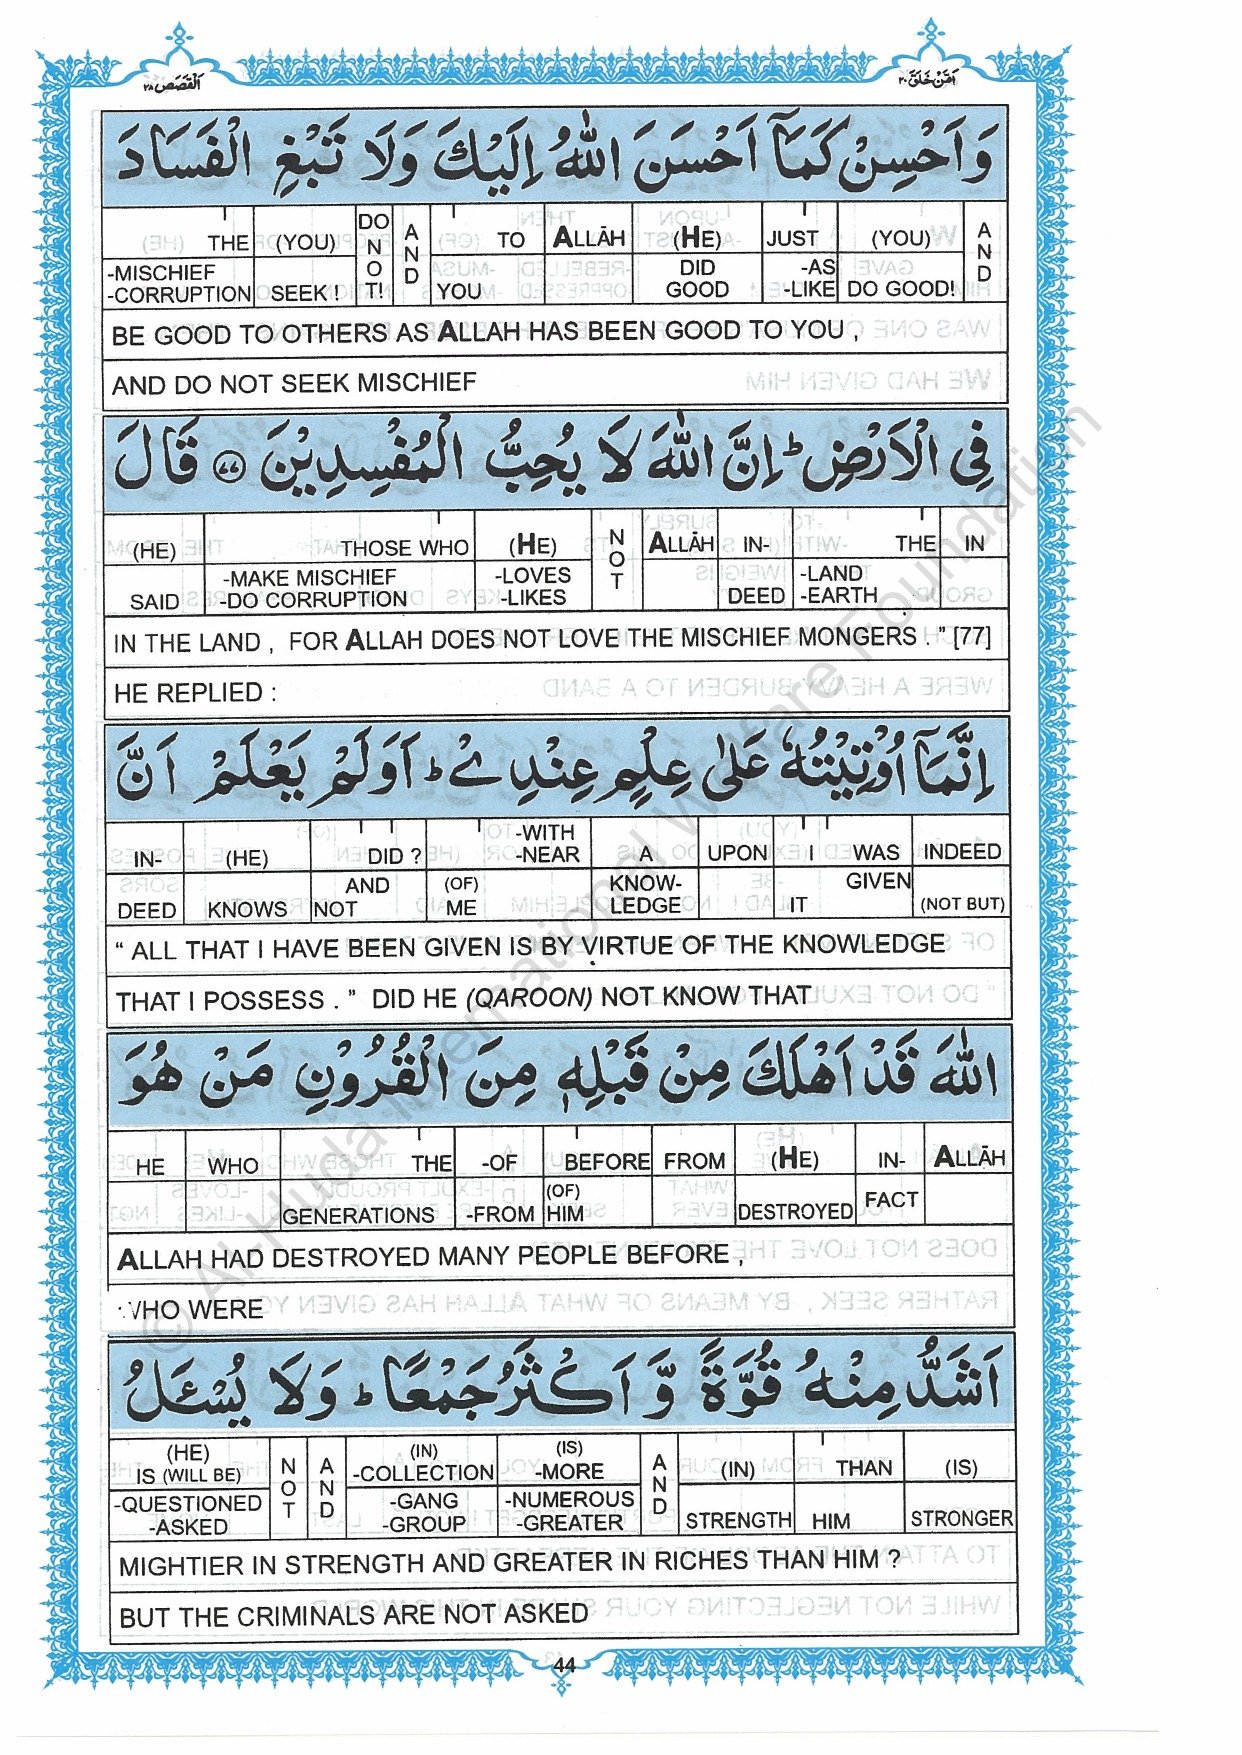 اَلْقَصَص ٢٨
اَمَّنْ خَلَقَ ٢٠
وَاَحْسِنْ كَمَآ اَحْسَنَ اللّٰهُ اِلَيْكَ وَلَا تَبْغِ الْفَسَادَ
THE (YOU) DO NOT! AND TO ALLĀH (HE) JUST (YOU) AND
-MISCHIEF -CORRUPTION SEEK ! YOU DID GOOD -AS -LIKE DO GOOD!
BE GOOD TO OTHERS AS ALLAH HAS BEEN GOOD TO YOU ,
AND DO NOT SEEK MISCHIEF
فِى الْاَرْضِ ؕ اِنَّ اللّٰهَ لَا يُحِبُّ الْمُفْسِدِيْنَ ٧٧ قَالَ
(HE) THOSE WHO (HE) NOT ALLĀH IN- THE IN
SAID -MAKE MISCHIEF -DO CORRUPTION -LOVES -LIKES DEED -LAND -EARTH
IN THE LAND , FOR ALLAH DOES NOT LOVE THE MISCHIEF MONGERS . ” [77]
HE REPLIED :
اِنَّمَآ اُوْتِيْتُهٗ عَلٰى عِلْمٍ عِنْدِىْ ؕ اَوَلَمْ يَعْلَمْ اَنَّ
IN- (HE) DID ? -WITH -NEAR A UPON I WAS INDEED
DEED KNOWS NOT AND (OF) ME KNOW- LEDGE IT GIVEN (NOT BUT)
“ ALL THAT I HAVE BEEN GIVEN IS BY VIRTUE OF THE KNOWLEDGE
THAT I POSSESS . ” DID HE (QAROON) NOT KNOW THAT
اللّٰهَ قَدْ اَهْلَكَ مِنْ قَبْلِهٖ مِنَ الْقُرُوْنِ مَنْ هُوَ
HE WHO THE -OF BEFORE FROM (HE) IN- ALLĀH
GENERATIONS -FROM (OF) HIM DESTROYED FACT
ALLAH HAD DESTROYED MANY PEOPLE BEFORE ,
WHO WERE
اَشَدُّ مِنْهُ قُوَّةً وَّاَكْثَرُ جَمْعًا ؕ وَلَا يُسْـَٔلُ
(HE) IS (WILL BE) NOT AND (IN) -COLLECTION (IS) -MORE AND (IN) THAN (IS)
-QUESTIONED -ASKED -GANG -GROUP -NUMEROUS -GREATER STRENGTH HIM STRONGER
MIGHTIER IN STRENGTH AND GREATER IN RICHES THAN HIM ?
BUT THE CRIMINALS ARE NOT ASKED
44
© Al-Huda International Welfare Foundation